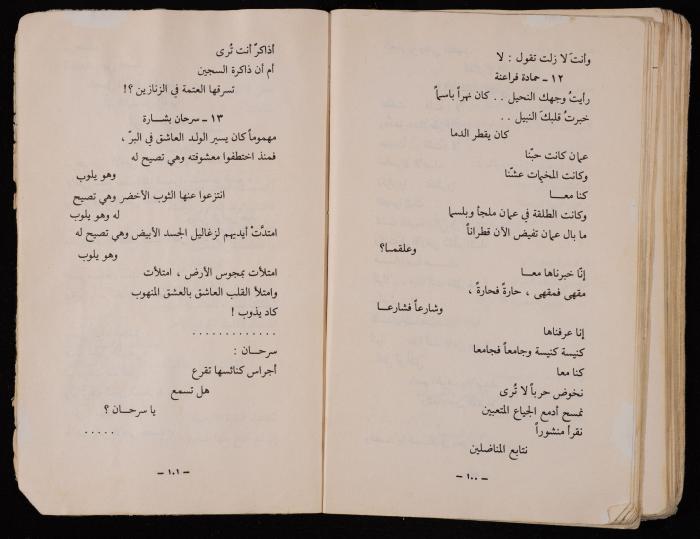 وأنتَ لا زلت تقول : لا
١٢ ـ حمادة فراعنة
رأيتُ وجهك النحيل . . كان نهراً باسماً
خبرتُ قلبكَ النبيل . .
كان يقطر الدما
عمان كانت حبّنا
وكانت المخيمات عشّنا
كنا معـــا
وكانت الطلقة في عمان ملجأ وبلسما
ما بال عمان تفيض الآن قطراناً
وعلقمـا؟
إنّا خبرناها معـــا
مقهى فمقهى ، حارةً فحارةً ،
وشارعاً فشارعـــا
إنا عرفناها
كنيسة كنيسة وجامعاً فجامعا
كنا معا
نخوض حرباً لا تُرى
نمسح أدمع الجياع المتعبين
نقرأ منشوراً
نتابع المناضلين
ـ ١٠٠ ـ
أذاكرٌ أنت تُرى
أم أن ذاكرة السجين
تسرقها العتمة في الزنازين ؟!
١٣ ـ سرحان بشــارة
مهموماً كان يسير الولد العاشق في البرّ ،
فمنذ اختطفوا معشوقته وهي تصيح له
وهو يلوب
انتزعوا عنها الثوب الأخضر وهي تصيح
له وهو يلوب
امتدَّتْ أيديهم لزغاليل الجسد الأبيض وهي تصيح له
وهو يلوب
امتلأت بمجوس الأرض ، امتلأت
وامتلأ القلب العاشق بالعشق المنهوب
كاد يذوب !
. . . . . . . . . . . . .
سرحــان :
أجراس كنائسها تقرع
هل تسمع
يا سرحــان ؟
. . . . .
ـ ١٠١ ـ